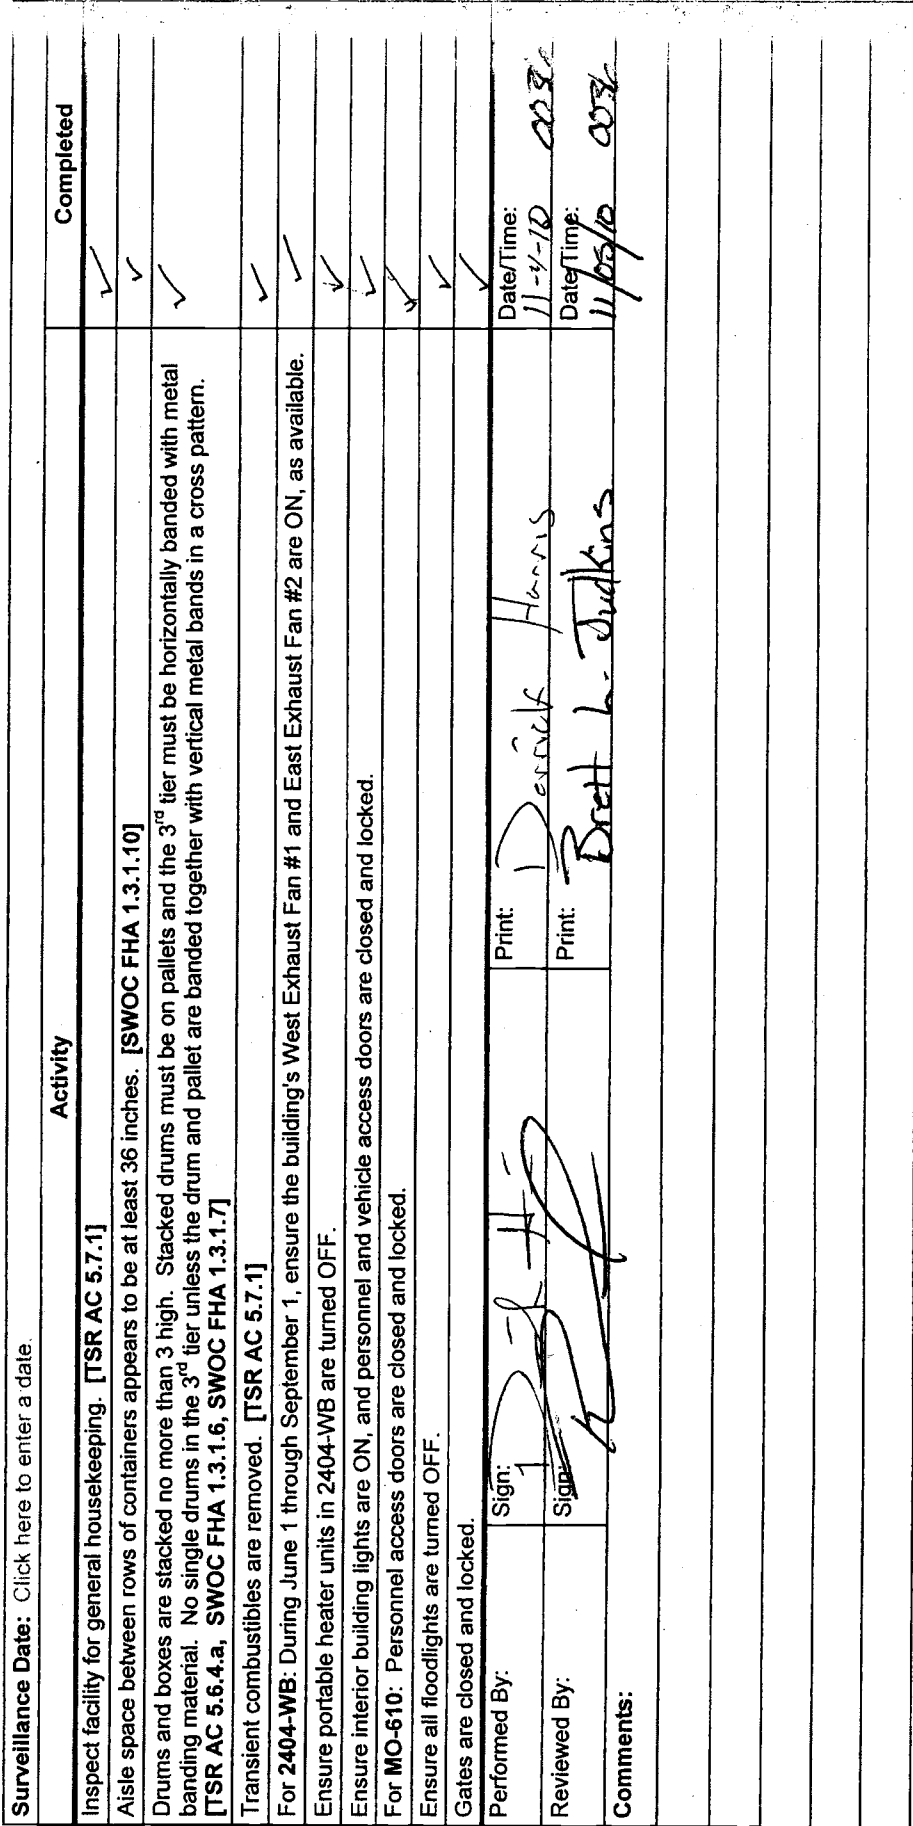 Surveillance Date: Click here to enter a date.
Activity Completed
Inspect facility for general housekeeping. [TSR AC 5.7.1] ✓
Aisle space between rows of containers appears to be at least 36 inches. [SWOC FHA 1.3.1.10] ✓
Drums and boxes are stacked no more than 3 high. Stacked drums must be on pallets and the 3rd tier must be horizontally banded with metal
banding material. No single drums in the 3rd tier unless the drum and pallet are banded together with vertical metal bands in a cross pattern.
[TSR AC 5.6.4.a, SWOC FHA 1.3.1.6, SWOC FHA 1.3.1.7] ✓
Transient combustibles are removed. [TSR AC 5.7.1] ✓
For 2404-WB: During June 1 through September 1, ensure the building's West Exhaust Fan #1 and East Exhaust Fan #2 are ON, as available. ✓
Ensure portable heater units in 2404-WB are turned OFF. ✓
Ensure interior building lights are ON, and personnel and vehicle access doors are closed and locked. ✓
For MO-610: Personnel access doors are closed and locked. ✓
Ensure all floodlights are turned OFF. ✓
Gates are closed and locked. ✓
Performed By: Sign: Print: Derrick Harris Date/Time: 11-4-10
Reviewed By: Sign: Print: Brett L. Judkins Date/Time: 11/05/10
Comments: